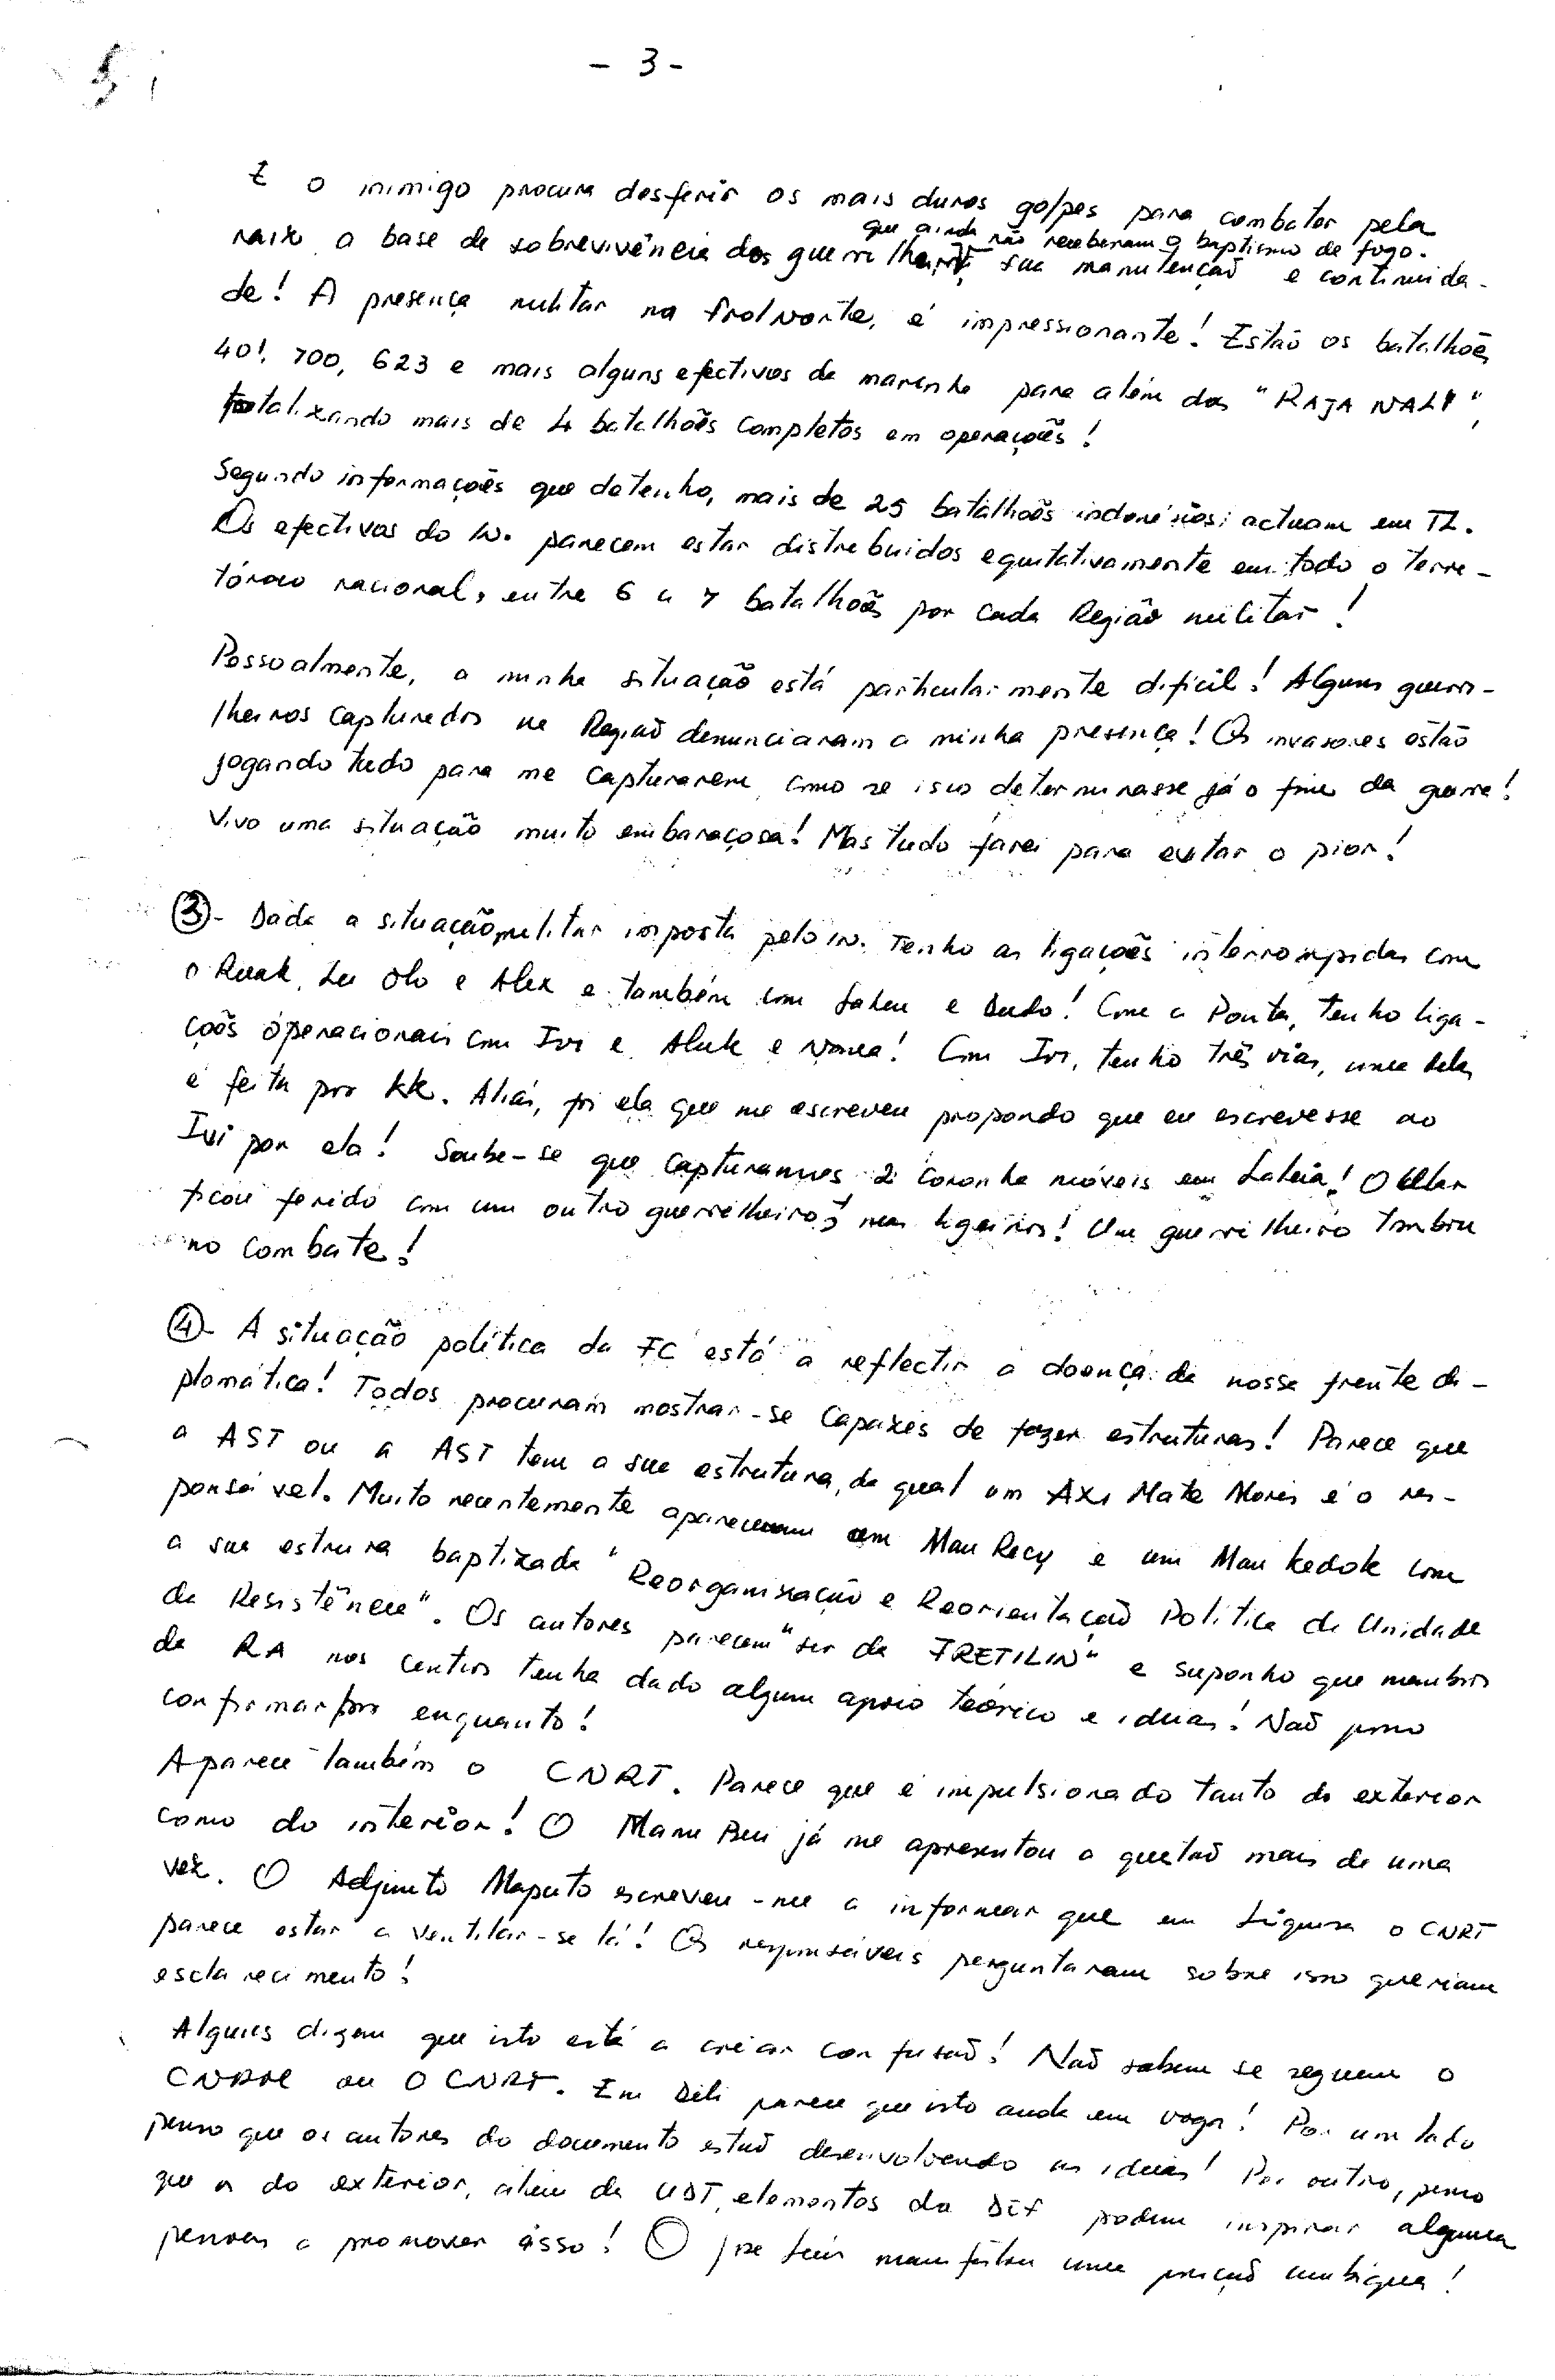 - 3 -
E o inimigo procura desferir os mais duros golpes para combater pela
que ainda não receberam o baptismo de fogo.
raiz a base de sobrevivência dos guerrilheiros, sua manutenção e continuida-
de! A presença militar na frol Norte, é impressionante! Estão os batalhões
401, 700, 623 e mais alguns efectivos da marinha para além dos "RAJA NALI",
totalizando mais de 4 batalhões completos em operações!
Segundo informações que detenho, mais de 25 batalhões indonésios actuam em TL.
Os efectivos do In. parecem estar distribuidos equitativamente em todo o terri-
tório nacional, entre 6 a 7 batalhões por cada Região militar!
Pessoalmente, a minha situação está particularmente difícil! Alguns guerri-
lheiros capturados na Região denunciaram a minha presença! Os invasores estão
jogando tudo para me capturarem, como se isso determinasse já o fim da guerra!
Vivo uma situação muito embaraçosa! Mas tudo farei para evitar o pior!
③- Dada a situação militar imposta pelo in. Tenho as ligações interrompidas com
o Ruak, Lu Olo e Alex e também com Sabeu e Dudo! Com a Ponta, tenho liga-
ções operacionais com Ivi e Aluk e ! Com Ivi, tenho três vias, uma delas
é feita por KK. Aliás, foi ela que me escreveu propondo que eu escrevesse ao
Ivi por ela! Soube-se que capturamos 2 coronha móveis em ! O
ficou ferido com um outro guerrilheiro, mas ligeiros! Um guerrilheiro tombou
no combate!
④- A situação política da FC está a reflectir a doença da nossa frente di-
plomática! Todos procuram mostrar-se capazes de fazer estruturas! Parece que
a AST ou a AST tem a sua estrutura, da qual um Axi Mate é o res-
ponsável. Muito recentemente apareceram um Mau Recy e um Mau Kedok com
a sua estrura baptizada "Reorganização e Reorientação Política da Unidade
da Resistência". Os autores parecem "ser da FRETILIN" e suponho que membros
da RA nos centros tenha dado algum apoio teórico e ideias! Naõ posso
confirmar por enquanto!
Aparece também o CNRT. Parece que é impulsionado tanto do exterior
como do interior! O já me apresentou a questaõ mais de uma
vez. O Adjunto Maputo escreveu-me a informar que em o CNRT
parece estar a ventilar-se lá! Os responsáveis perguntaram sobre isso queriam
esclarecimento!
Alguns dizem que isto está a criar confusaõ! Naõ sabem se seguem o
CNRM ou O CNRT. Em Dili parece que isto anda em voga! Por um lado
penso que os autores do documento estaõ desenvolvendo as ideias! Por outro, penso
que os do exterior, além da UDT, elementos da DEF podem inspirar algumas
pessoas a promover isso! O José Luís manifestou uma posiçaõ ambígua!